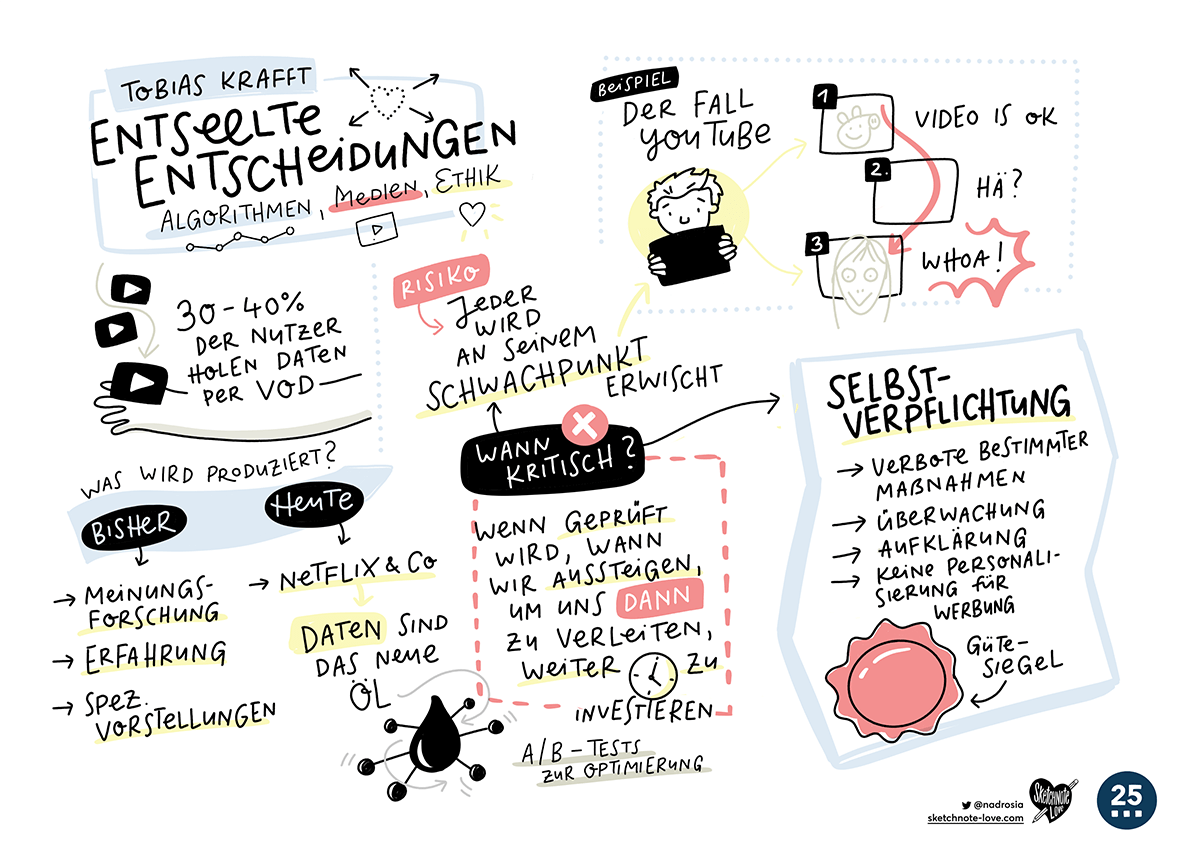 TOBIAS KRAFFT
ENTSEELTE
ENTSCHEIDUNGEN
ALGORITHMEN, MEDIEN, ETHIK
BEISPIEL
DER FALL
YOUTUBE
1
VIDEO IS OK
2.
HÄ?
3
WHOA!
30-40%
DER NUTZER
HOLEN DATEN
PER VOD
RISIKO
JEDER
WIRD
AN SEINEM
SCHWACHPUNKT
ERWISCHT
WANN
KRITISCH?
WENN GEPRÜFT
WIRD, WANN
WIR AUSSTEIGEN,
UM UNS DANN
ZU VERLEITEN,
WEITER ZU
INVESTIEREN
A/B-TESTS
ZUR OPTIMIERUNG
WAS WIRD PRODUZIERT?
BISHER
→ MEINUNGS-
FORSCHUNG
→ ERFAHRUNG
→ SPEZ.
VORSTELLUNGEN
HEUTE
→ NETFLIX & CO
DATEN SIND
DAS NEUE
ÖL
SELBST-
VERPFLICHTUNG
→ VERBOTE BESTIMMTER
MAßNAHMEN
→ ÜBERWACHUNG
→ AUFKLÄRUNG
→ KEINE PERSONALI-
SIERUNG FÜR
WERBUNG
GÜTE-
SIEGEL
@nadrosia
sketchnote-love.com
Sketchnote
Love
25